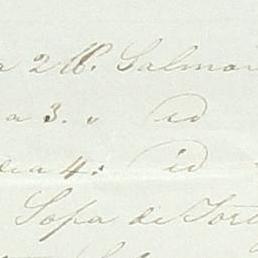 a 2 lb. Salmon
a 3. " id
dia 4. id
Sopa de Tort